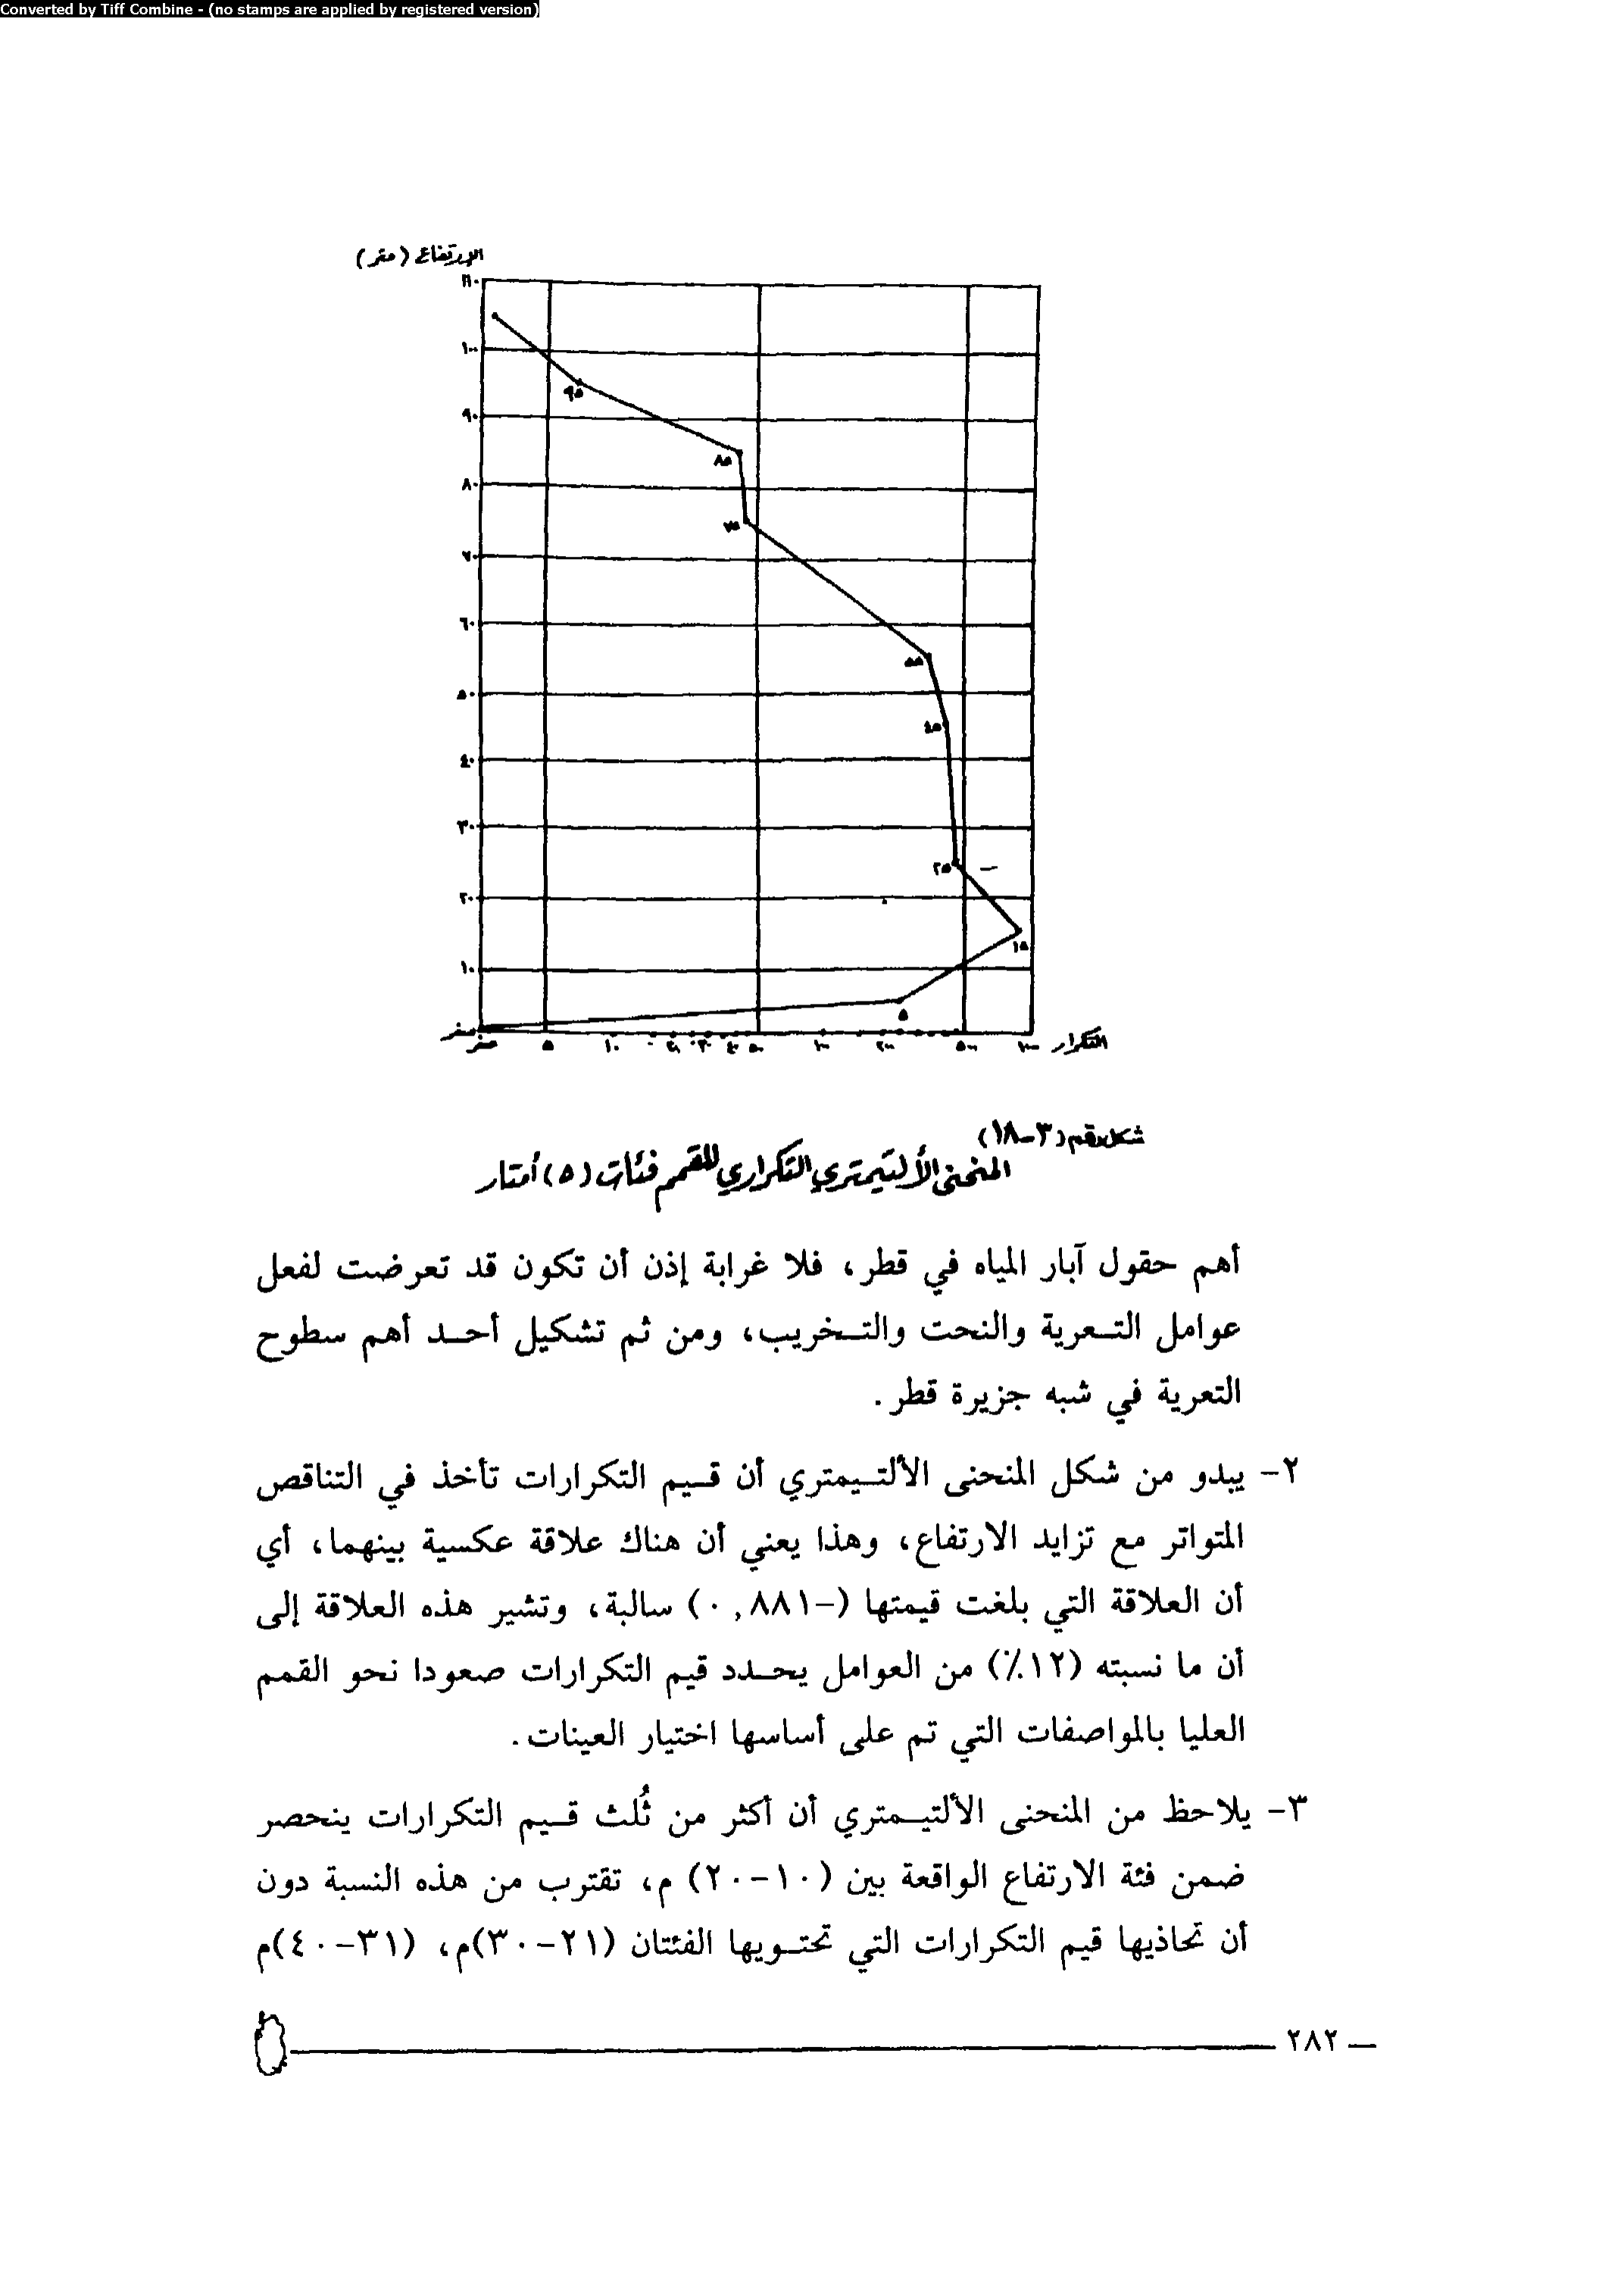 Converted by Tiff Combine - (no stamps are applied by registered version)
الإرتفاع (متر)
١١٠
١٠٠
٩٥
٩٠
٨٥
٨٠
٧٥
٧٠
٦٠
٥٥
٥٠
٤٥
٤٠
٣٠
٢٥
٢٠
١٥
١٠
٥
صفر
صفر ٥ ١٠ ٢٠ ٣٠ ٤٠ ٥٠ ١٠٠ ٢٠٠ ٥٠٠ ١٠٠٠ التكرار
شكل رقم (٣-١٨)
المنحنى الألتيمتري التكراري للقمم فئات (٥) أمتار
أهم حقول آبار المياه في قطر، فلا غرابة إذن أن تكون قد تعرضت لفعل
عوامل التعرية والنحت والتخريب، ومن ثم تشكيل أحد أهم سطوح
التعرية في شبه جزيرة قطر.
٢- يبدو من شكل المنحنى الألتيمتري أن قيم التكرارات تأخذ في التناقص
المتواتر مع تزايد الارتفاع، وهذا يعني أن هناك علاقة عكسية بينهما، أي
أن العلاقة التي بلغت قيمتها (-٠,٨٨١) سالبة، وتشير هذه العلاقة إلى
أن ما نسبته (١٢٪) من العوامل يحدد قيم التكرارات صعودا نحو القمم
العليا بالمواصفات التي تم على أساسها اختيار العينات.
٣- يلاحظ من المنحنى الألتيمتري أن أكثر من ثُلث قيم التكرارات ينحصر
ضمن فئة الارتفاع الواقعة بين (١٠-٢٠) م، تقترب من هذه النسبة دون
أن تحاذيها قيم التكرارات التي تحتويها الفئتان (٢١-٣٠)م، (٣١-٤٠)م
— ٢٨٢